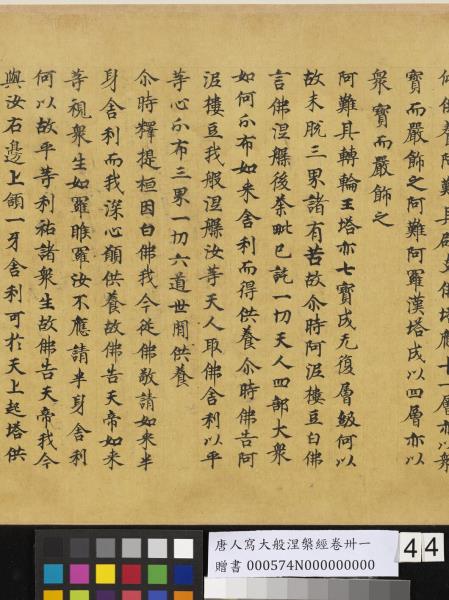 何供養阿難其辟支佛塔應十一層亦以衆
寶而嚴飾之阿難阿羅漢塔成以四層亦以
衆寶而嚴飾之
阿難其轉輪王塔亦七寶成无復層級何以
故未脱三界諸有苦故尒時阿泥樓豆白佛
言佛涅槃後荼毗已訖一切天人四部大衆
如何分布如來舍利而得供養尒時佛告阿
泥樓豆我般涅槃汝等天人取佛舍利以平
等心分布三界一切六道世間供養
尒時釋提桓因白佛我今從佛敬請如來半
身舍利而我深心願供養故佛告天帝如來
等視衆生如羅睺羅汝不應請半身舍利
何以故平等利祐諸衆生故佛告天帝我今
與汝右邊上頷一牙舍利可於天上起塔供
唐人寫大般涅槃經卷卅一
贈書 000574N000000000
44